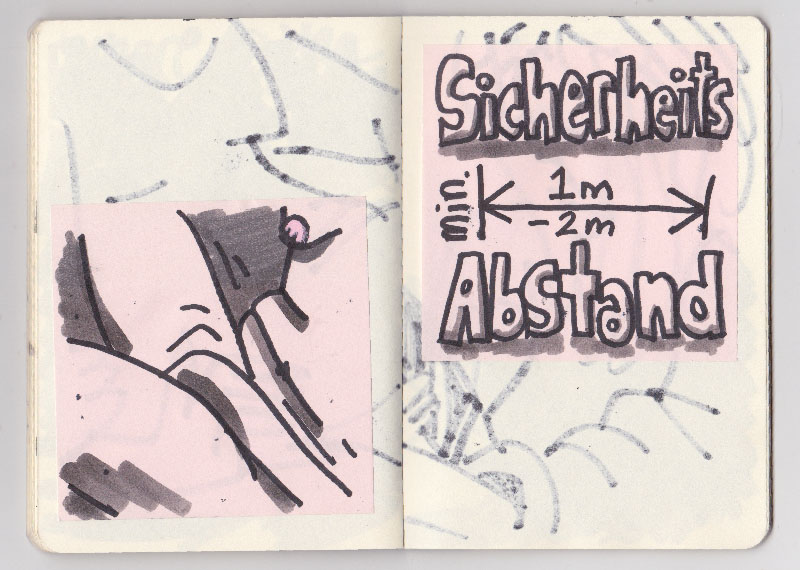 Sicherheits
min. 1m
-2m
Abstand